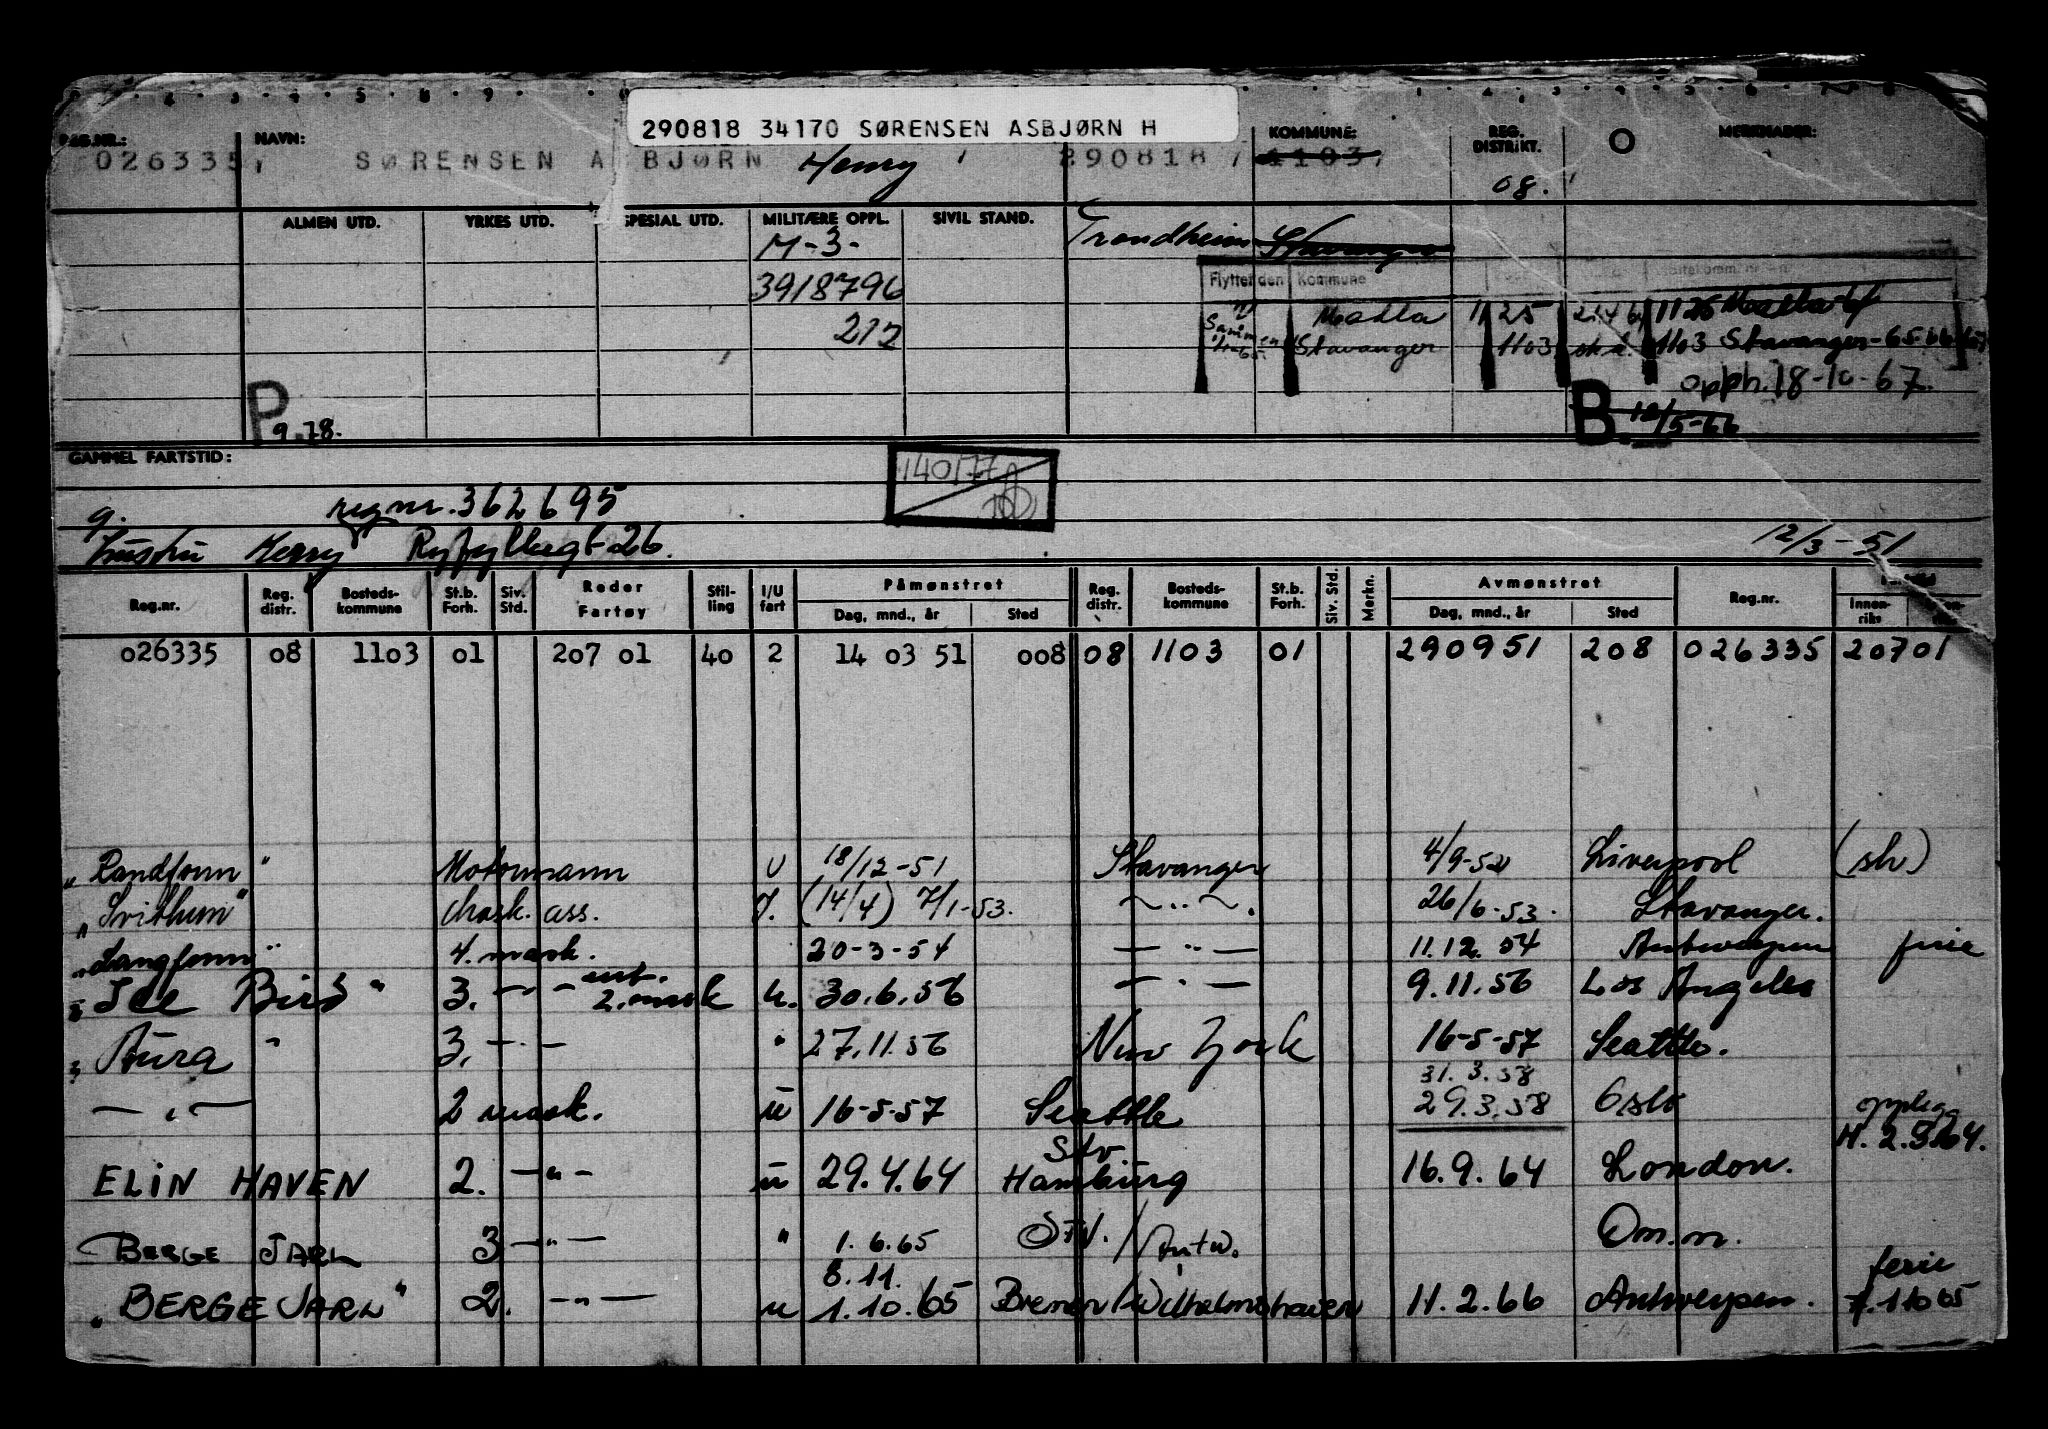 290818 34170 SØRENSEN ASBJØRN H
REG.NR.: NAVN: KOMMUNE: REG. DISTRIKT. O MERKNADER:
026335, SØRENSEN ASBJØRN Henry 290818, 1103,
08.
ALMEN UTD. YRKES UTD. SPESIAL UTD. MILITÆRE OPPL. SIVIL STAND.
M-3- Trondheim Stavanger
3918796 Flyttet den Kommune
212 Madla 1125 1125 Madla
Stavanger 1103 1103 Stavanger-65-66-67
opph. 18-10-67.
P 9.78. B. 12/5-66
GAMMEL FARTSTID: 140/77
g. regnr. 362695
Henry Ryfylkegt 26. 12/3-51
Reg.nr. Reg. distr. Bosteds-kommune St.b. Forh. Siv. Std. Reder Fartøy Stil-ling I/U fart Påmønstret Dag, mnd., år Sted Reg. distr. Bosteds-kommune St.b. Forh. Siv. Std. Merkn. Avmønstret Dag, mnd., år Sted Reg.nr. Innen-riks
026335 08 1103 01 207 01 40 2 14 03 51 008 08 1103 01 290951 208 026335 20701
"Randfonn" Motormann U 18/12-51 Stavanger 4/9-52 Liverpool (sh)
"Svithun" Mask. ass. (14/4) 7/1-53. — " — . 26/6-53. Stavanger.
"Langfonn" 4. mask. 20-3-54 — " — 11.12.54 Antwerpen ferie
"Ice Bird" 3. — " — 2. mask u. 30.6.56 — " — 9.11.56 Los Angeles
"Aura" 3. — " — " 27.11.56 New York 16-5-57 Seattle.
31.3.58
— " — 2 mask. u 16-5-57 Seattle 29.3.58 Oslo opplegg
Stv H. 2.9.64.
ELIN HAVEN 2. — " — u 29.4.64 Hamburg 16.9.64 London.
BERGE JARL 3 — " — " 1.6.65 Stv. / Antw. Om.m.
8.11. ferie
"BERGE JARL" 2. — " — u 1.10.65 Bremen / Wilhelmshaven 11.2.66 Antwerpen. f. 11065